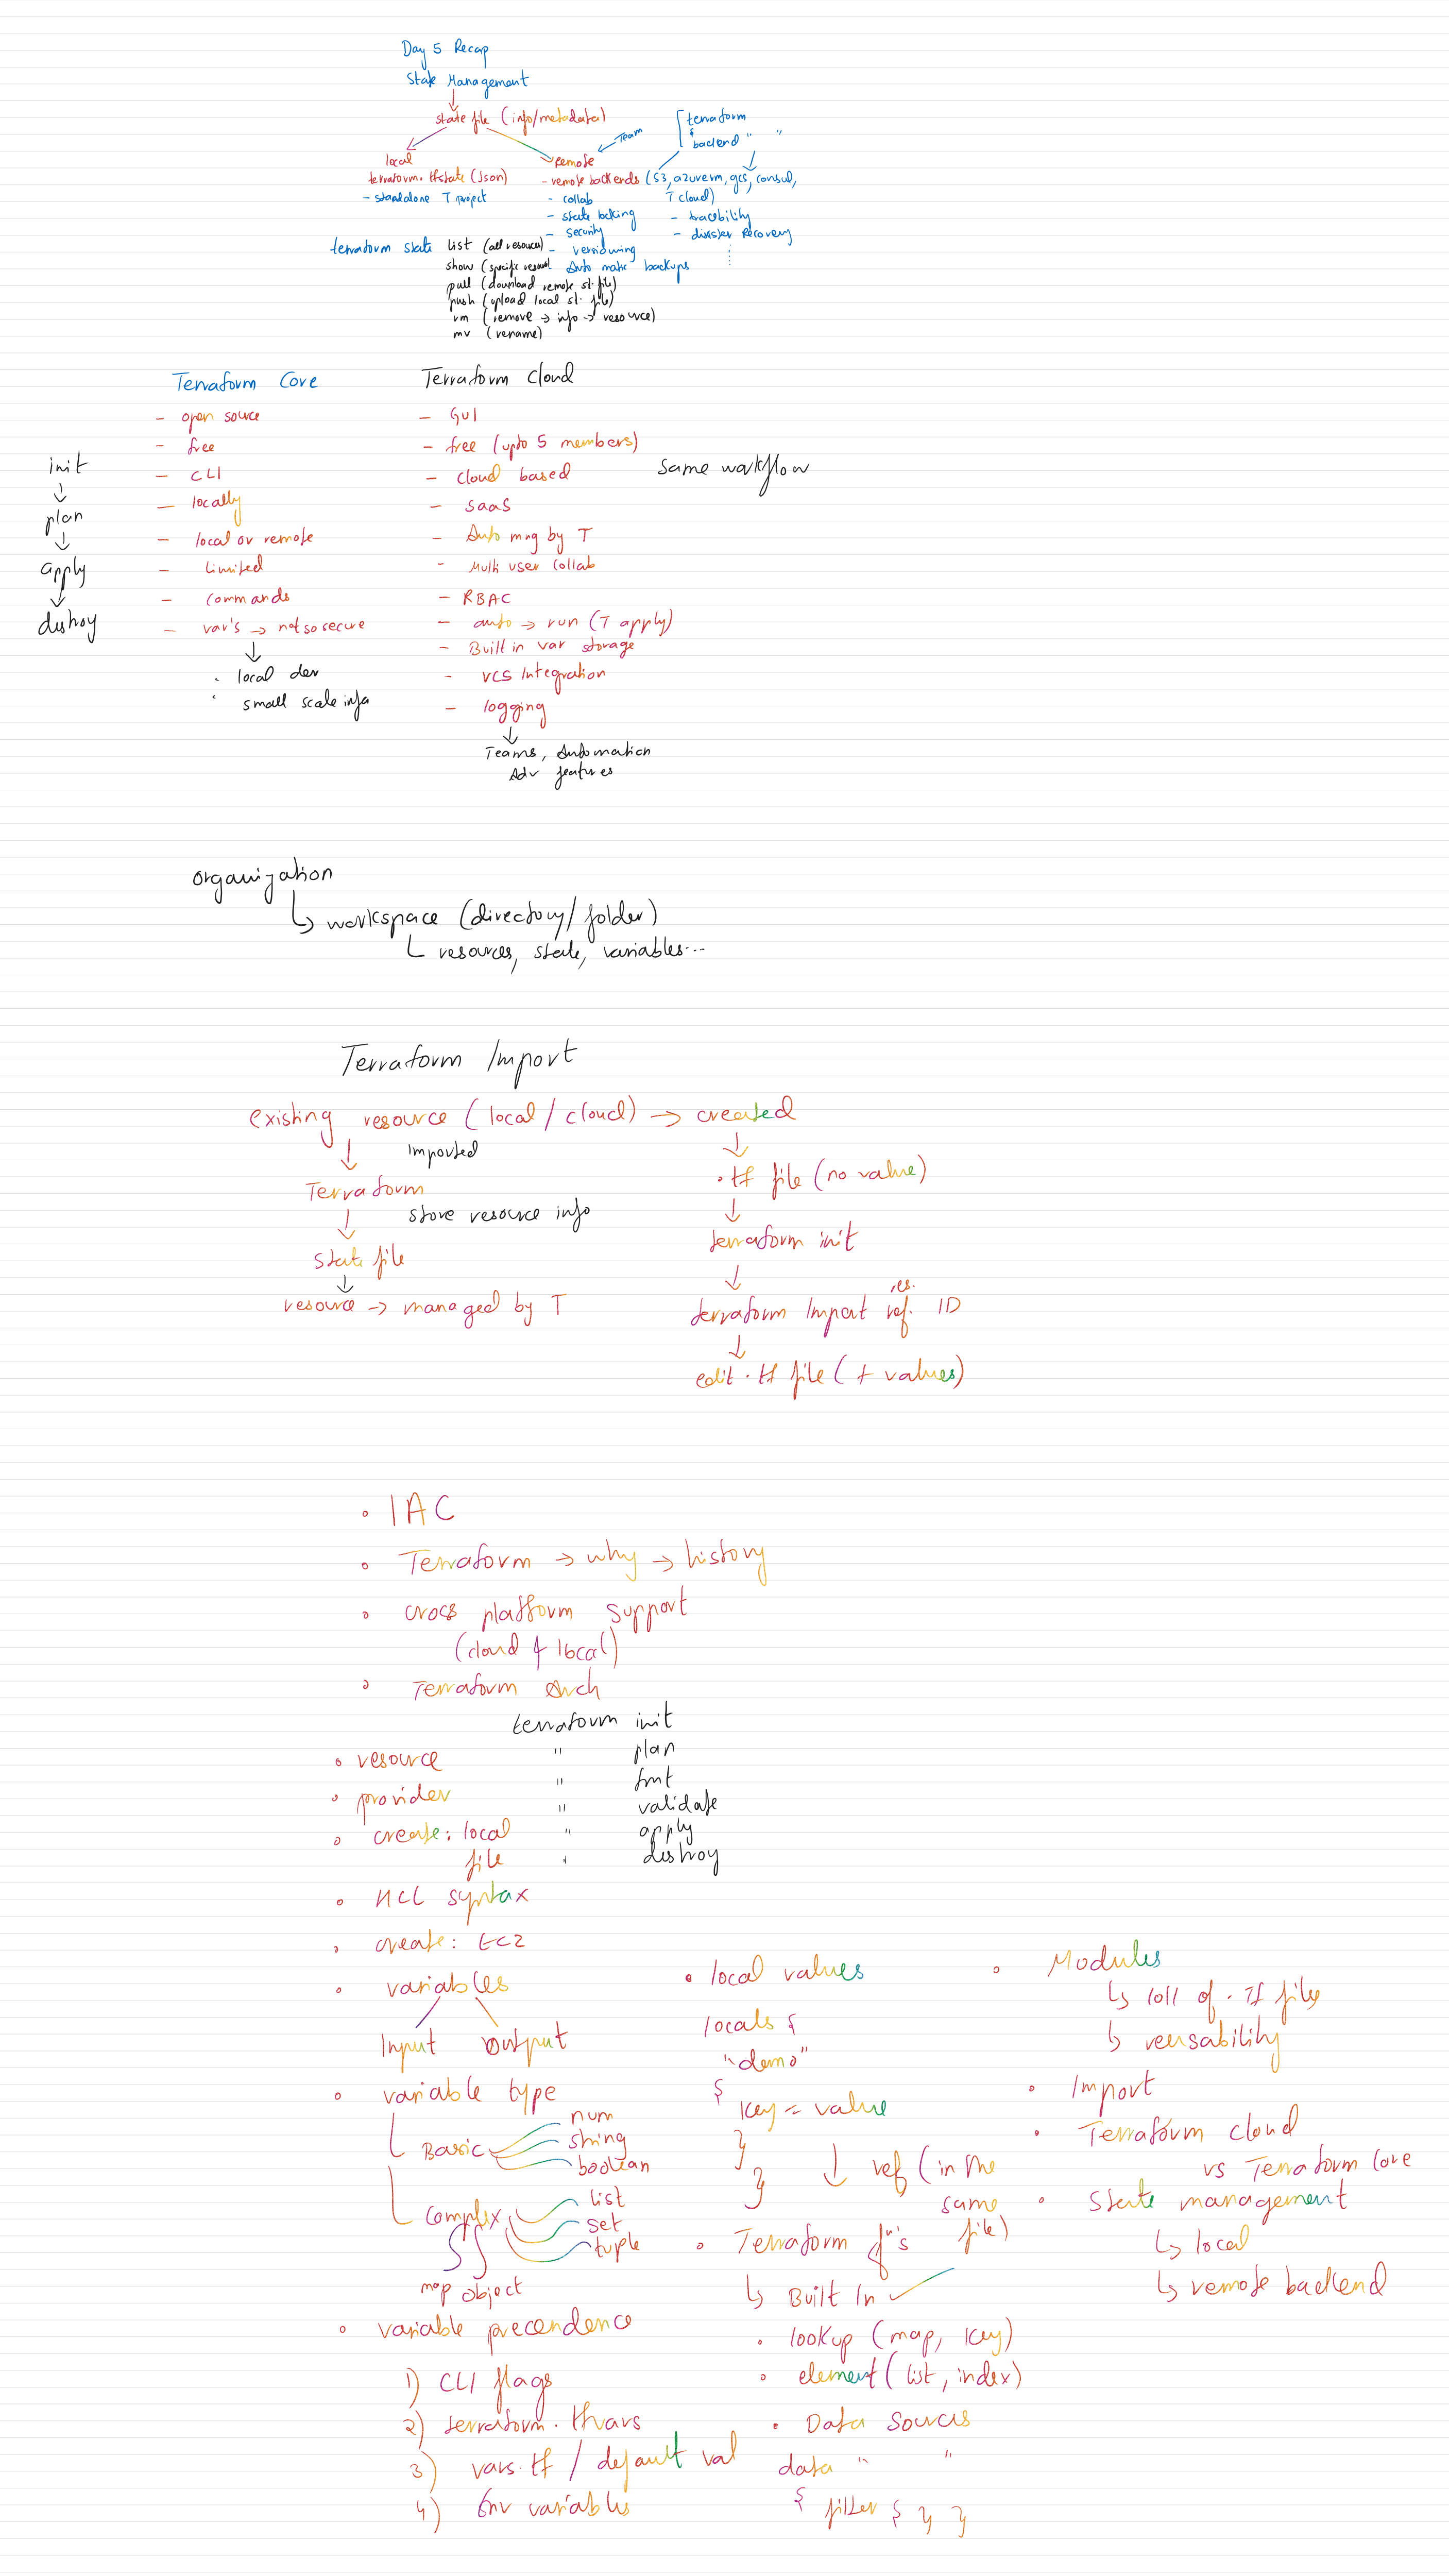 Day 5 Recap
State Management
state file (info/metadata)
local
terraform.tfstate (Json)
- standalone T project
Team
Remote
- remote backends (S3, azurerm, gcs, consul,
T cloud)
- collab
- state locking
- security
- versioning
- Auto matic backups
- tracebility
- disaster Recovery
terraform
{
backend " "
terraform state list (all resources)
show (specific resource)
pull (download remote st. file)
push (upload local st. file)
rm (remove → info → resource)
mv (rename)
init
↓
plan
↓
apply
↓
destroy
Terraform Core
- open source
- free
- CLI
- locally
- local or remote
- Limited
- Commands
- var's → not so secure
↓
. local dev
. small scale infa
Terraform Cloud
- GUI
- free (upto 5 members)
- cloud based
- SaaS
- Auto mng by T
- Multi user Collab
- RBAC
- auto → run (T apply)
- Built in var storage
- VCS Integration
- logging
↓
Teams, Automation
Adv features
same workflow
organization
↳ workspace (directory/folder)
└ resources, state, variables...
Terraform Import
existing resource (local/cloud) → created
↓ Imported
Terraform
↓ store resource info
State file
↓
resource → managed by T
↓
.tf file (no value)
↓
terraform init
↓
terraform Import res. ref. ID
↓
edit .tf file (+ values)
• IAC
• Terraform → why → history
• cross platform support
(cloud & local)
• Terraform Arch
terraform init
" plan
" fmt
" validate
" apply
" destroy
• resource
• provider
• create: local
file
• HCL syntax
• create: EC2
• variables
Input Output
• variable type
Basic
num
string
boolean
Complex
list
set
tuple
map object
• variable precendence
1) CLI flags
2) terraform.tfvars
3) vars.tf / default val
4) Env variables
• local values
locals {
"demo"
{
key = value
}
}
↓ ref (in the
same
file)
• Terraform fn's
↳ Built In
• lookup (map, key)
• element (list, index)
• Data Sources
data " "
{ filter { } }
• Modules
↳ coll of .tf files
↳ reusability
• Import
• Terraform cloud
vs Terraform Core
• State management
↳ local
↳ remote backend